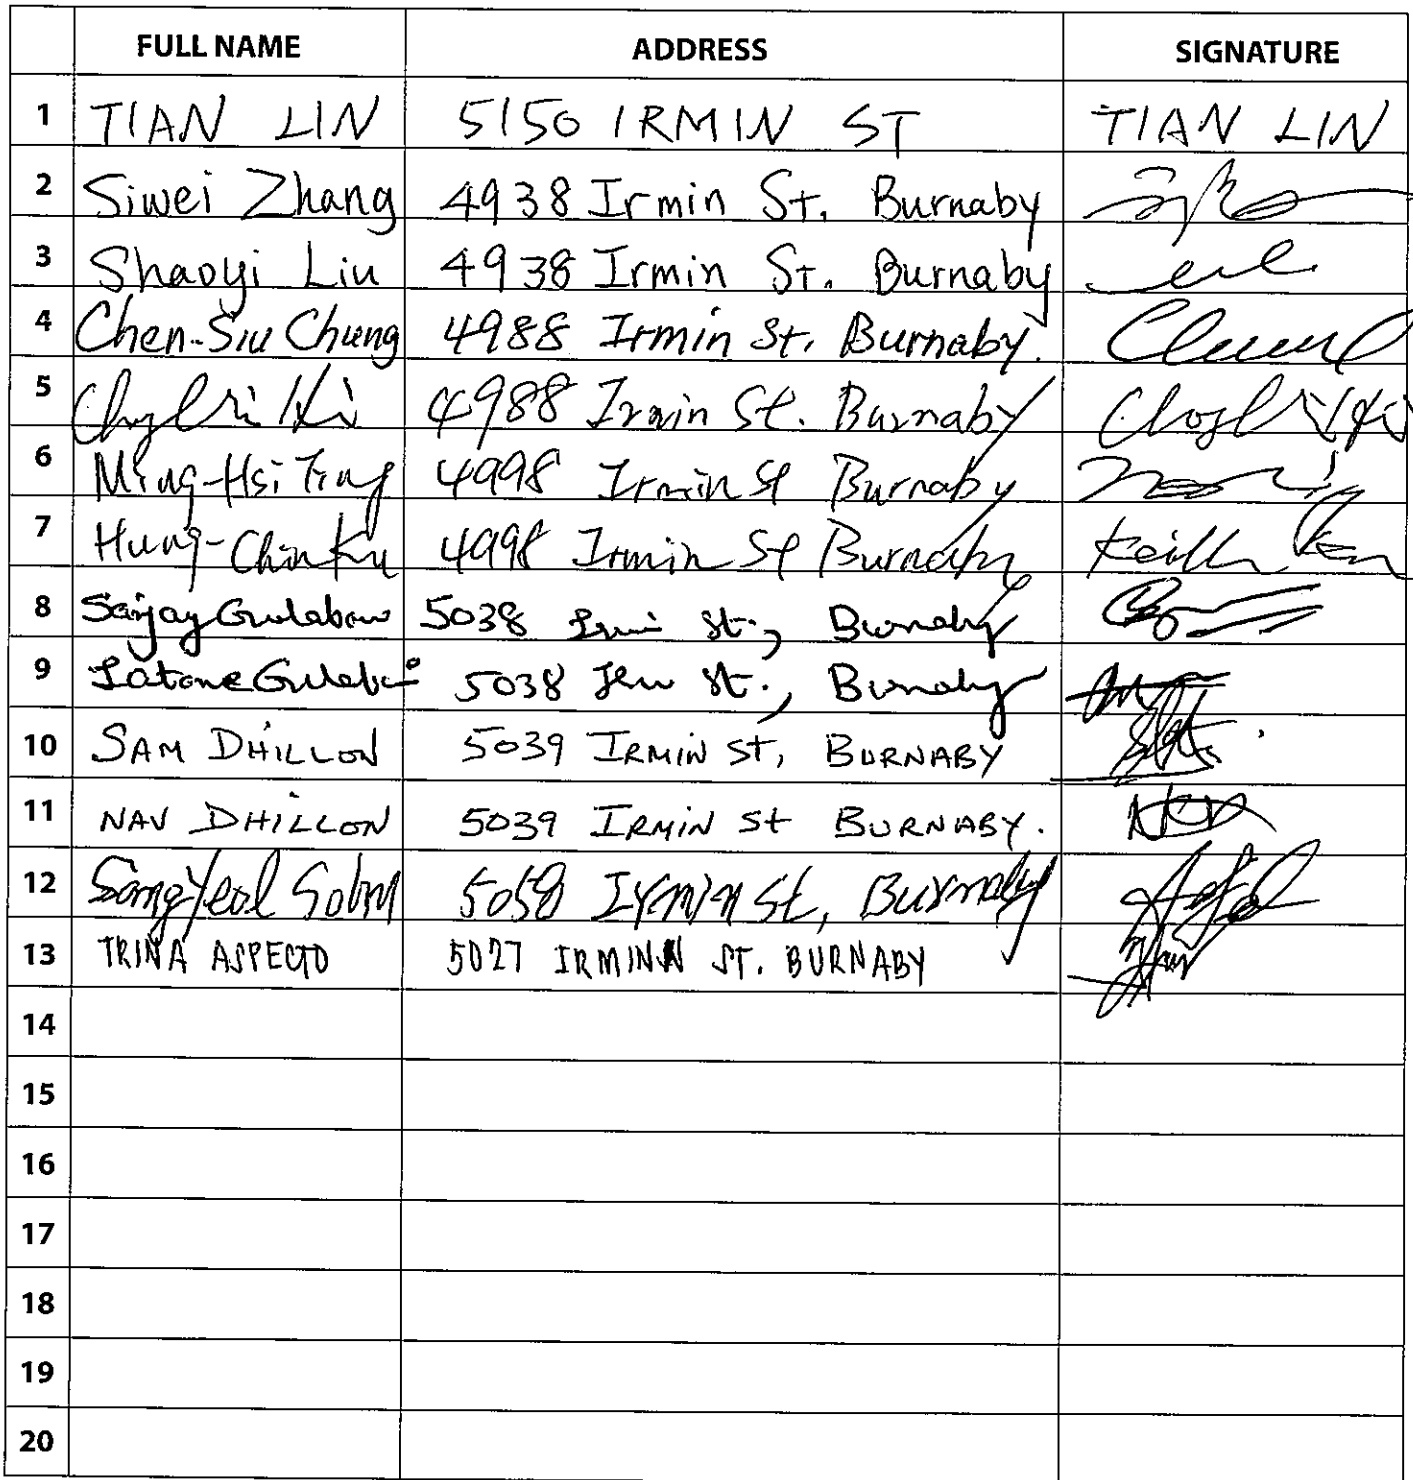 FULL NAME ADDRESS SIGNATURE
1 TIAN LIN 5150 IRMIN ST TIAN LIN
2 Siwei Zhang 4938 Irmin St. Burnaby
3 Shaoyi Liu 4938 Irmin St. Burnaby
4 Chen-Siu Chung 4988 Irmin St. Burnaby.
5 4988 Irmin St. Burnaby
6 Ming-Hsi Ting 4998 Irmin St Burnaby
7 Hung-Chin Ku 4998 Irmin St Burnaby
8 Sanjay 5038 St., Burnaby
9 5038 St., Burnaby
10 SAM DHILLON 5039 IRMIN ST, BURNABY
11 NAV DHILLON 5039 IRMIN St BURNABY.
12 SangYeol 5058 Irmin St, Burnaby
13 TRINA ASPECTO 5027 IRMINN ST. BURNABY
14
15
16
17
18
19
20